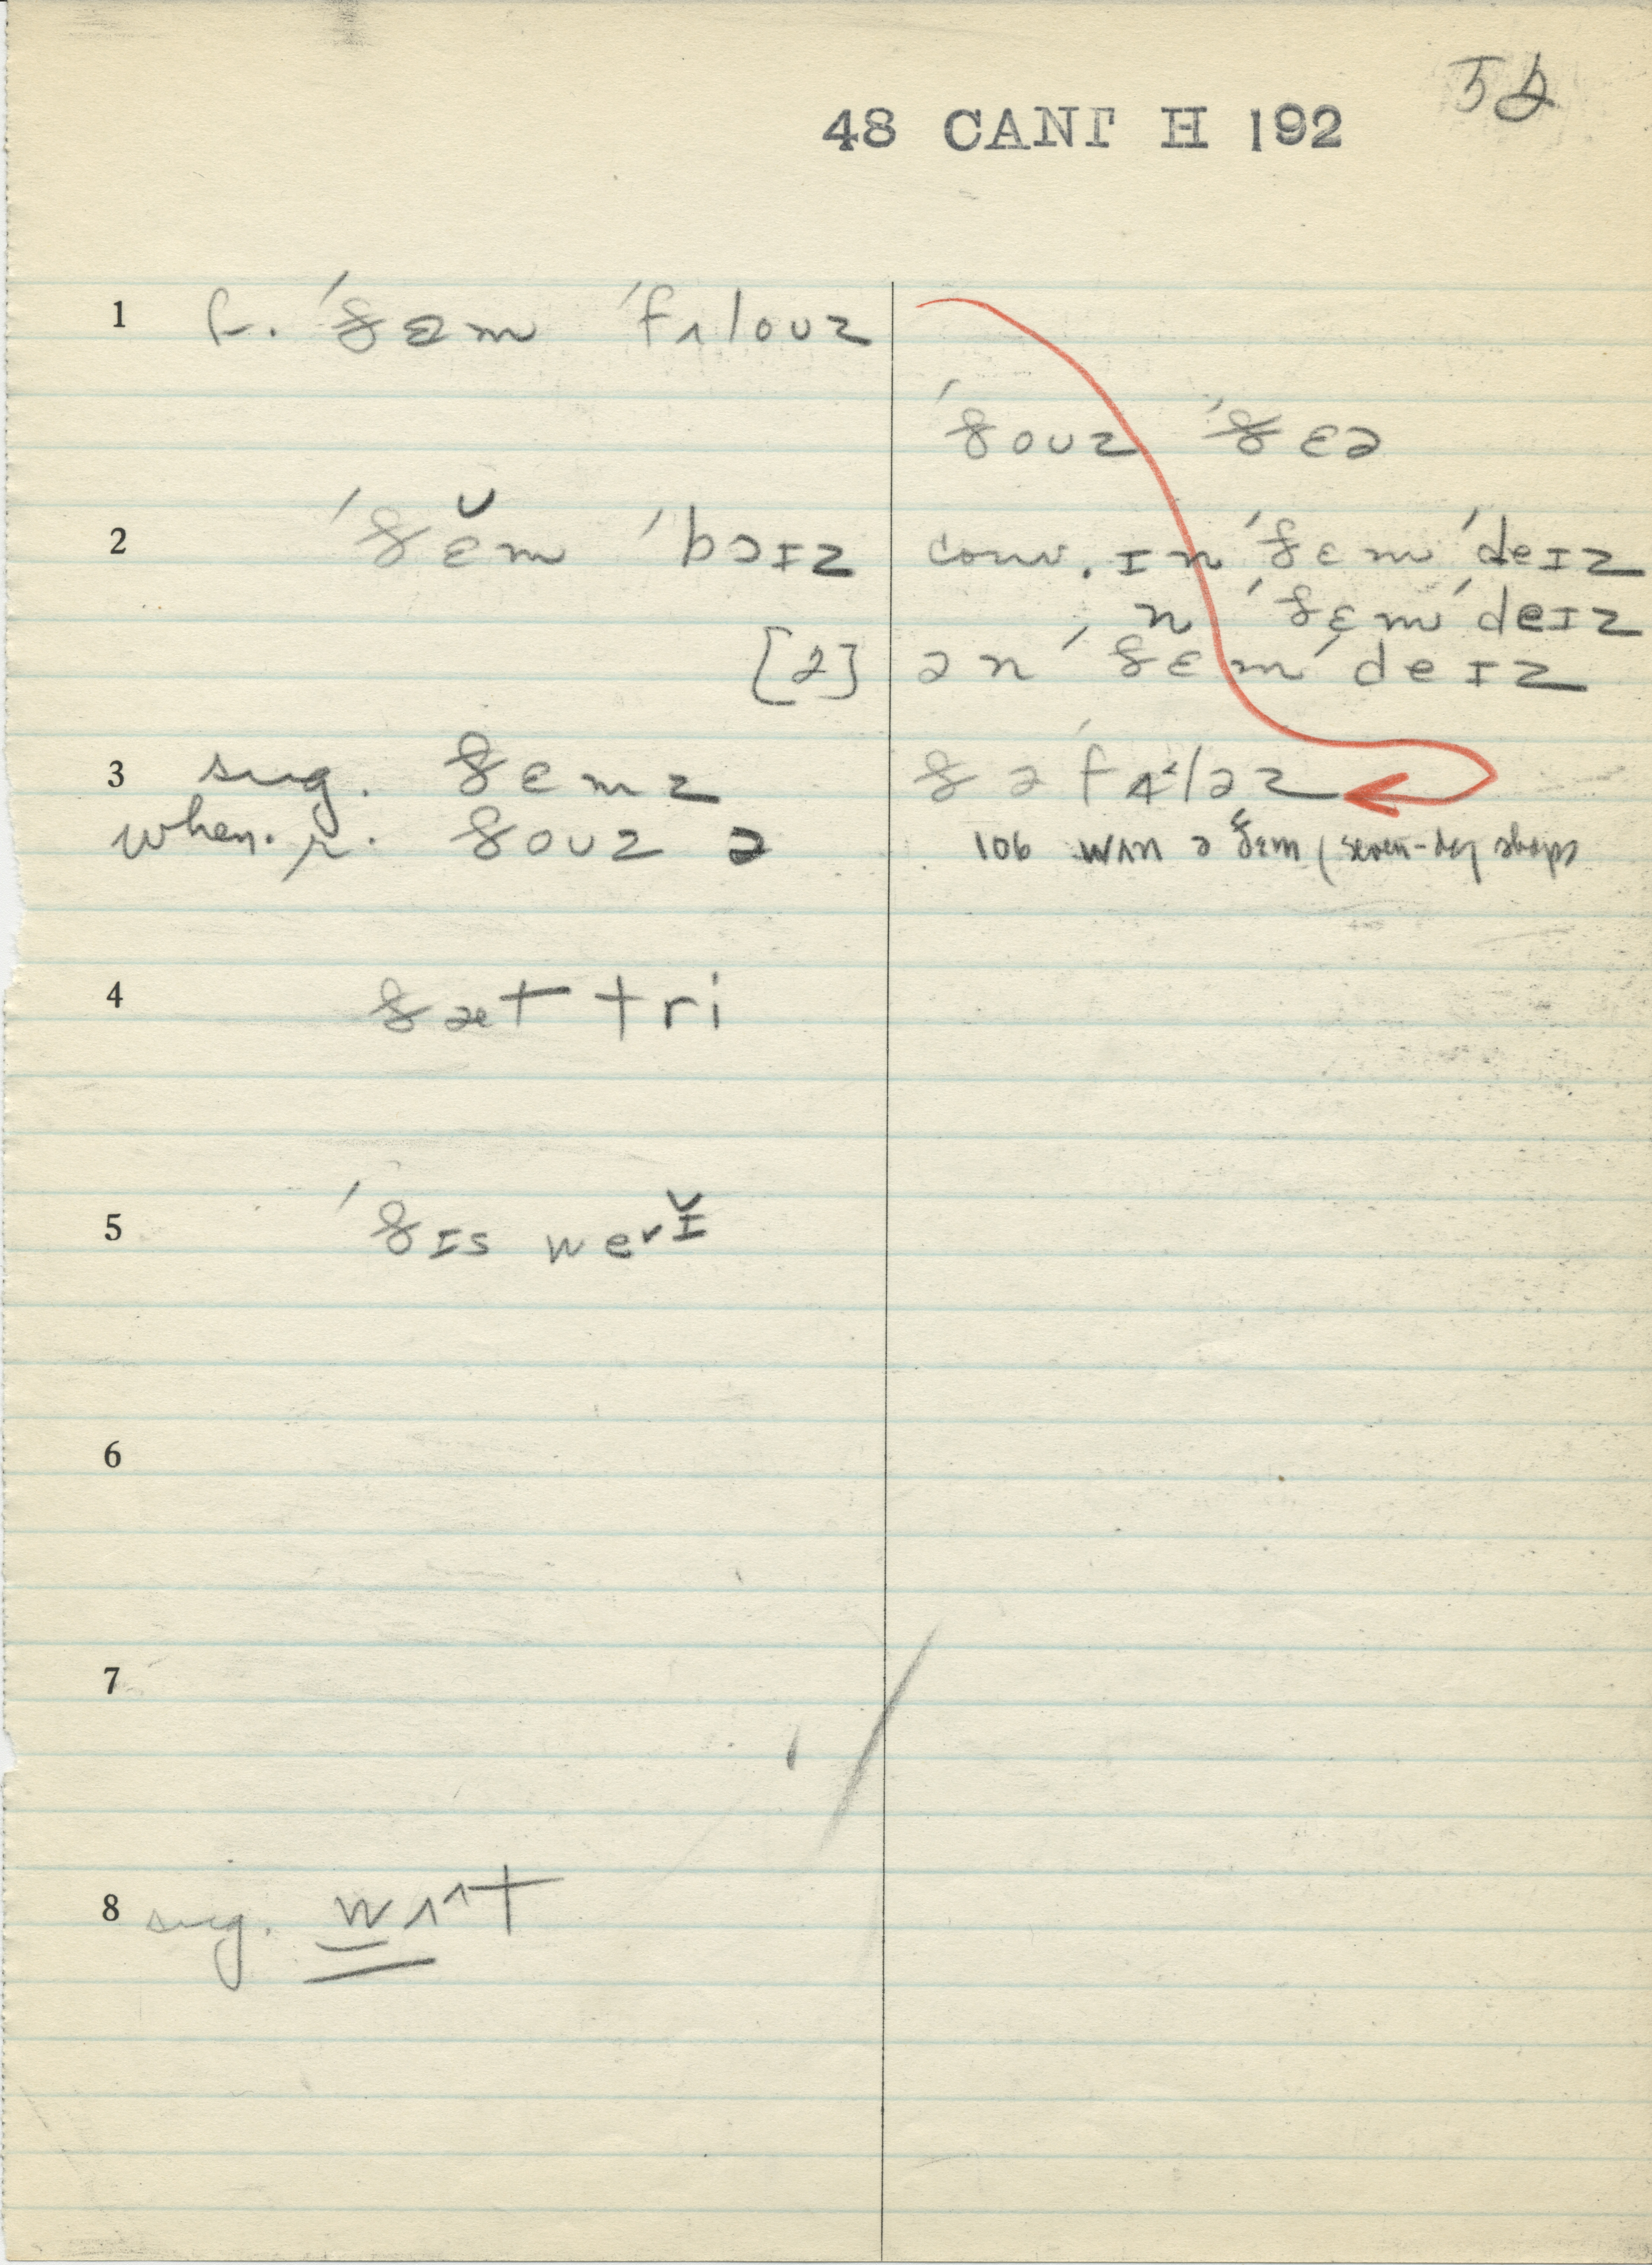 52
48 CANT H 192
1 f. ˈðɛm ˈfɪloʊz
ˈðoʊz ˈðɛə
2 ˈðɛ̆m ˈbɔɪz conv. ɪnˈðɛmˈdeɪz
nˈðɛmˈdeɪz
[2] ənˈðɛmˈdeɪz
3 sug. ðɛmz ðəˈfɑˈləz
when. r. ðoʊz ə 106 wʌn ə ðɛm (seven-day shops
4 ðæt tri
5 ˈðɪs werɪ̆
6
7
8 sug. wʌ^t